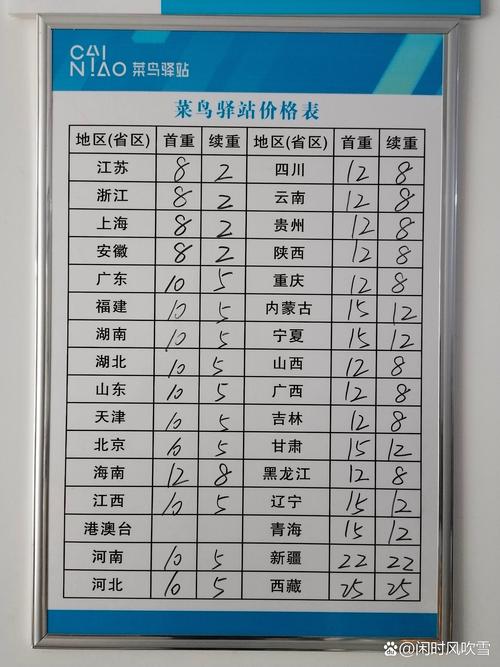 CAI
NIAO 菜鸟驿站
菜鸟驿站价格表
地区(省区) 首重 续重 地区(省区) 首重 续重
江苏 8 2 四川 12 8
浙江 8 2 云南 12 8
上海 8 2 贵州 12 8
安徽 8 2 陕西 12 8
广东 10 5 重庆 12 8
福建 10 5 内蒙古 15 12
湖南 10 5 宁夏 15 12
湖北 10 5 山西 12 8
山东 10 5 广西 12 8
天津 10 5 吉林 12 8
北京 10 5 甘肃 15 12
海南 12 8 黑龙江 12 8
江西 10 5 辽宁 15 12
港澳台 青海 15 12
河南 10 5 新疆 22 22
河北 10 5 西藏 25 25
@闲时风吹雪